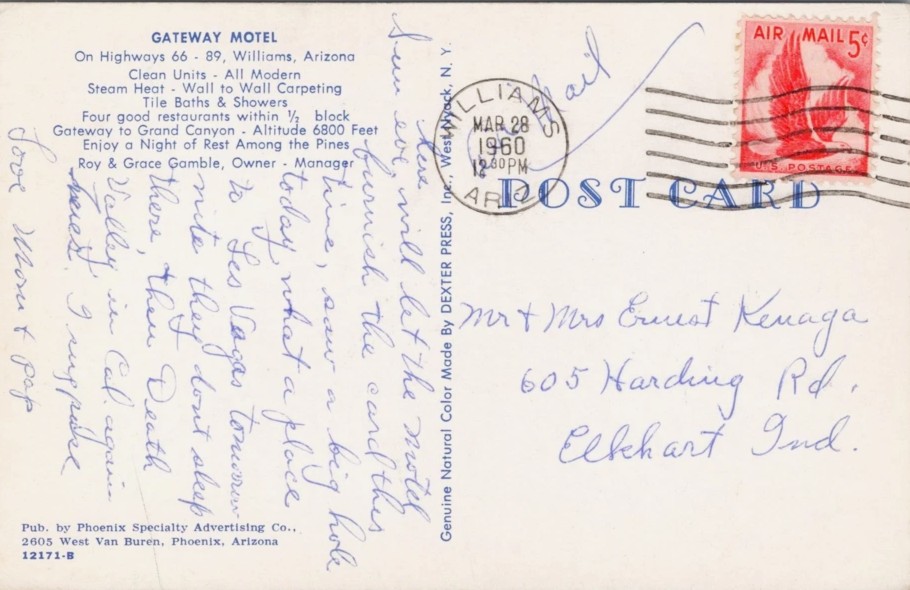 GATEWAY MOTEL
On Highways 66 - 89, Williams, Arizona
Clean Units - All Modern
Steam Heat - Wall to Wall Carpeting
Tile Baths & Showers
Four good restaurants within ½ block
Gateway to Grand Canyon - Altitude 6800 Feet
Enjoy a Night of Rest Among the Pines
Roy & Grace Gamble, Owner - Manager
Sun eve
here will let the motel
furnish the card this
time, saw a big hole
today, what a place
to Les Vagas tomorrow
nite they dont sleep
there, & then Death
Valley in Cal. again
I suppose
Love Mom & pop
Pub. by Phoenix Specialty Advertising Co.,
2605 West Van Buren, Phoenix, Arizona
12171-B
Genuine Natural Color Made By DEXTER PRESS, Inc., West Nyack, N. Y.
WILLIAMS
MAR 28
1960
12 30 PM
ARIZ
Mail
AIR MAIL 5¢
U.S. POSTAGE
POST CARD
Mr + Mrs Ernest Kenaga
605 Harding Rd.
Elkhart Ind.